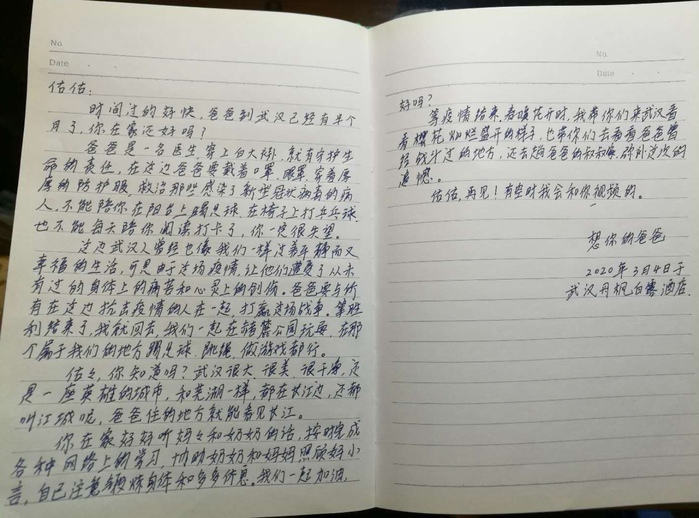 No
Date
估估：
时间过的好快，爸爸到武汉已经有半个
月了，你在家还好吗？
爸爸是一名医生，穿上白大褂，就有守护生
命的责任，在这边爸爸要戴着口罩、眼罩，穿着厚
厚的防护服，救治那些感染了新型冠状病毒的病
人，不能陪你在阳台上踢足球，在椅子上打乒乓球，
也不能每天陪你阅读打卡了，你一定很失望。
这边武汉人曾经也像我们一样过着平静而又
幸福的生活，可是由于这场疫情，让他们遭受了从未
有过的身体上的痛苦和心灵上的创伤。爸爸要与所
有在这边抗击疫情的人在一起，打赢这场战争。等胜
利结束了，我就回去，我们一起在赭麓公园玩耍，在那
个属于我们的地方踢足球、跳绳、做游戏都行。
估々，你知道吗？武汉很大、很美、很干净，这
是一座英雄的城市，和芜湖一样，都在长江边，还都
叫江城呢，爸爸住的地方就能看见长江。
你在家好好听妈々和奶奶的话，按时完成
各种网络上的学习，协助奶奶和妈妈照顾好小
言，自己注意锻炼身体和多多休息。我们一起加油，
No
Date
好吗？
等疫情结束，春暖花开时，我带你们来武汉看
看樱花灿烂盛开的样子，也带你们去看看爸爸曾
经战斗过的地方，还去
估估，再见！有些时我会和你视频的。
想你的爸爸
2020年3月4日于
武汉丹枫白露酒店